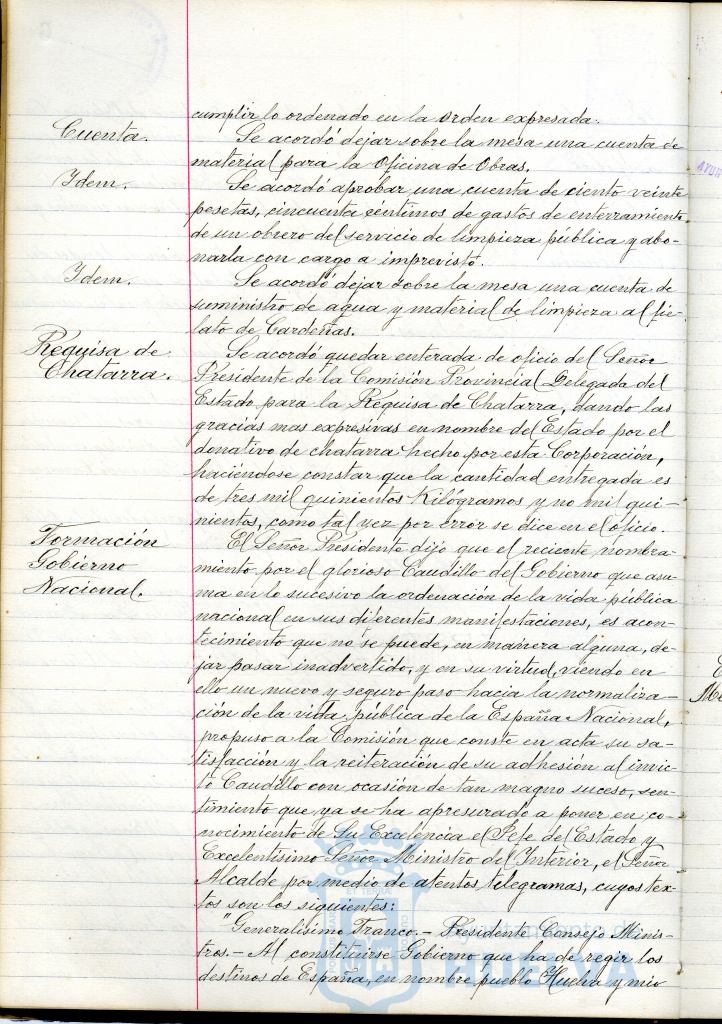 cumplir lo ordenado en la orden expresada.
Cuenta.
Se acordó dejar sobre la mesa una cuenta de
material para la oficina de Obras.
Idem.
Se acordó aprobar una cuenta de ciento veinte
pesetas, cincuenta céntimos de gastos de enterramiento
de un obrero del servicio de limpieza pública y abo-
narla con cargo a imprevisto.
Idem.
Se acordó dejar sobre la mesa una cuenta de
suministro de agua y material de limpieza al fie-
lato de Cardeñas.
Requisa de
Chatarra.
Se acordó quedar enterada de oficio del Señor
Presidente de la Comisión Provincial Delegada del
Estado para la Requisa de Chatarra, dando las
gracias mas expresivas en nombre del Estado por el
donativo de chatarra hecho por esta Corporación,
haciéndose constar que la cantidad entregada es
de tres mil quinientos Kilógramos y no mil qui-
nientos, como tal vez por error se dice en el oficio.
Formación
Gobierno
Nacional.
El Señor Presidente dijo que el reciente nombra-
miento por el glorioso Caudillo del Gobierno que asu-
ma en lo sucesivo la ordenación de la vida pública
nacional en sus diferentes manifestaciones, es acon-
tecimiento que no se puede, en manera alguna, de-
jar pasar inadvertido, y en su virtud, viendo en
ello un nuevo y seguro paso hacia la normaliza-
ción de la vida pública de la España Nacional,
propuso a la Comisión que conste en acta su sa-
tisfacción y la reiteración de su adhesión al invic-
to Caudillo con ocasión de tan magno suceso, sen-
timiento que ya se ha apresurado a poner en co-
nocimiento de Su Excelencia el Jefe del Estado y
Excelentísimo Señor Ministro del Interior, el Señor
Alcalde por medio de atentos telegramas, cuyos tex-
tos son los siguientes:
"Generalísimo Franco.- Presidente Consejo Minis-
tros.- Al constituirse Gobierno que ha de regir los
destinos de España, en nombre pueblo Huelva y mio